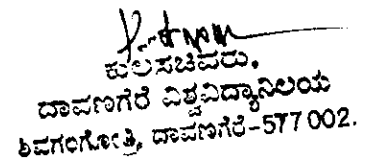 ಕುಲಸಚಿವರು,
ದಾವಣಗೆರೆ ವಿಶ್ವವಿದ್ಯಾನಿಲಯ
ಶಿವಗಂಗೋತ್ರಿ, ದಾವಣಗೆರೆ-577 002.